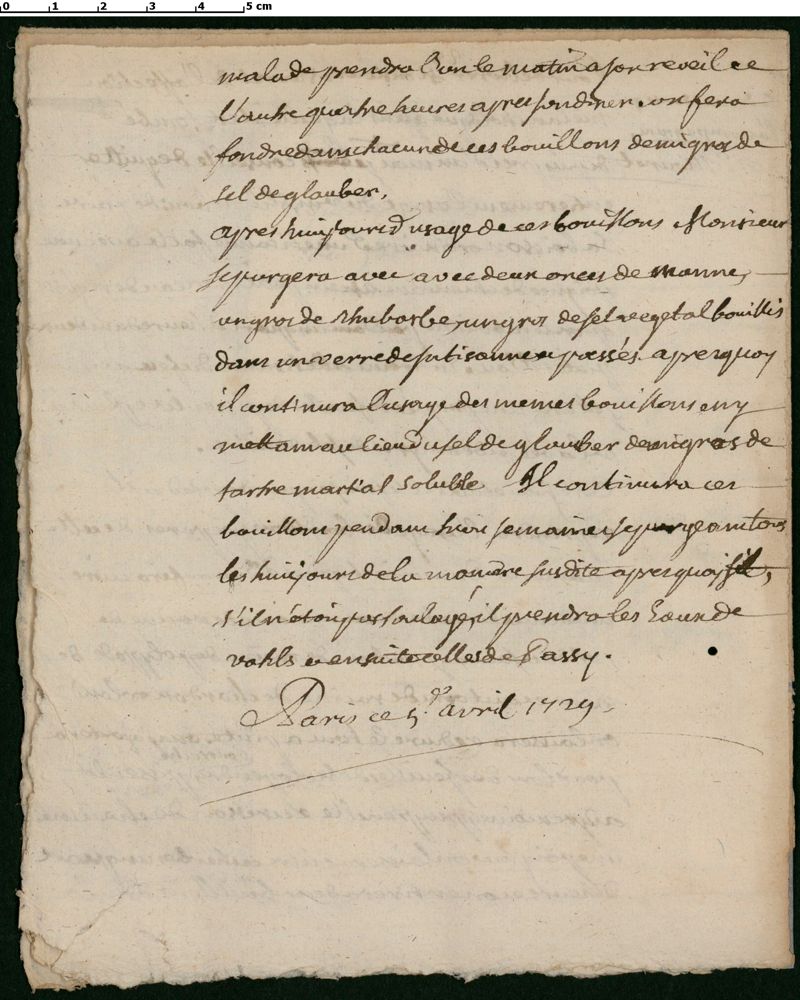 0 1 2 3 4 5 cm
malade prendra l'un le matin a son reveil ee
l'autre quatre heures apres son diner. on fera
fondre dans chacun de ces bouillons demi gros de
sel de glauber,
apres huit jours d'usage de ces bouillons Monsieur
se purgera avec avec deux onces de manne,
un gros de rhubarbe, un gros de sel vegetal bouillis
dans un verre de sa tisanne et passés. apres quoy
il continura l'usage des memes bouillons en y
mettant au lieu du sel de glauber demi gros de
tartre martial soluble Il continura ces
bouillons pendant trois semaines se purgeant tous
les huit jours de la maniere susdite apres quoy s'il,
s'il n'étoit pas soulagé, il prendra les Eaux de
vahls et ensuite celles de Passy.
Paris ce 5.e avril 1729.